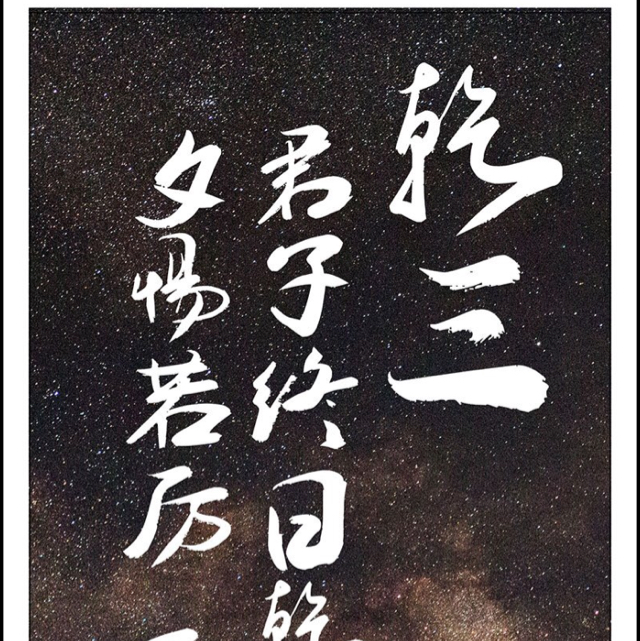 乾三
君子终日乾
夕惕若厉